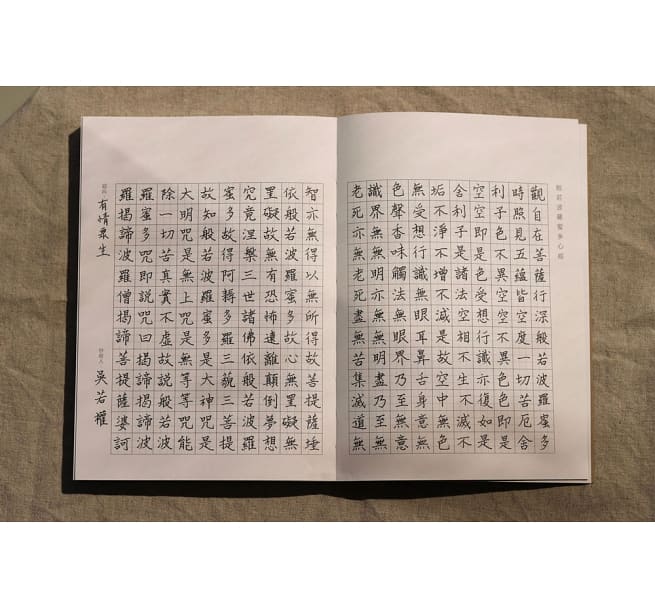 般若波羅蜜多心經
觀自在菩薩行深般若波羅蜜多
時照見五蘊皆空度一切苦厄舍
利子色不異空空不異色色即是
空空即是色受想行識亦復如是
舍利子是諸法空相不生不滅不
垢不淨不增不減是故空中無色
無受想行識無眼耳鼻舌身意無
色聲香味觸法無眼界乃至無意
識界無無明亦無無明盡乃至無
老死亦無老死盡無苦集滅道無
智亦無得以無所得故菩提薩埵
依般若波羅蜜多故心無罣礙無
罣礙故無有恐怖遠離顛倒夢想
究竟涅槃三世諸佛依般若波羅
蜜多故得阿耨多羅三藐三菩提
故知般若波羅蜜多是大神咒是
大明咒是無上咒是無等等咒能
除一切苦真實不虛故說般若波
羅蜜多咒即說咒曰揭諦揭諦波
羅揭諦波羅僧揭諦菩提薩婆訶
迴向 有情眾生
吳若權